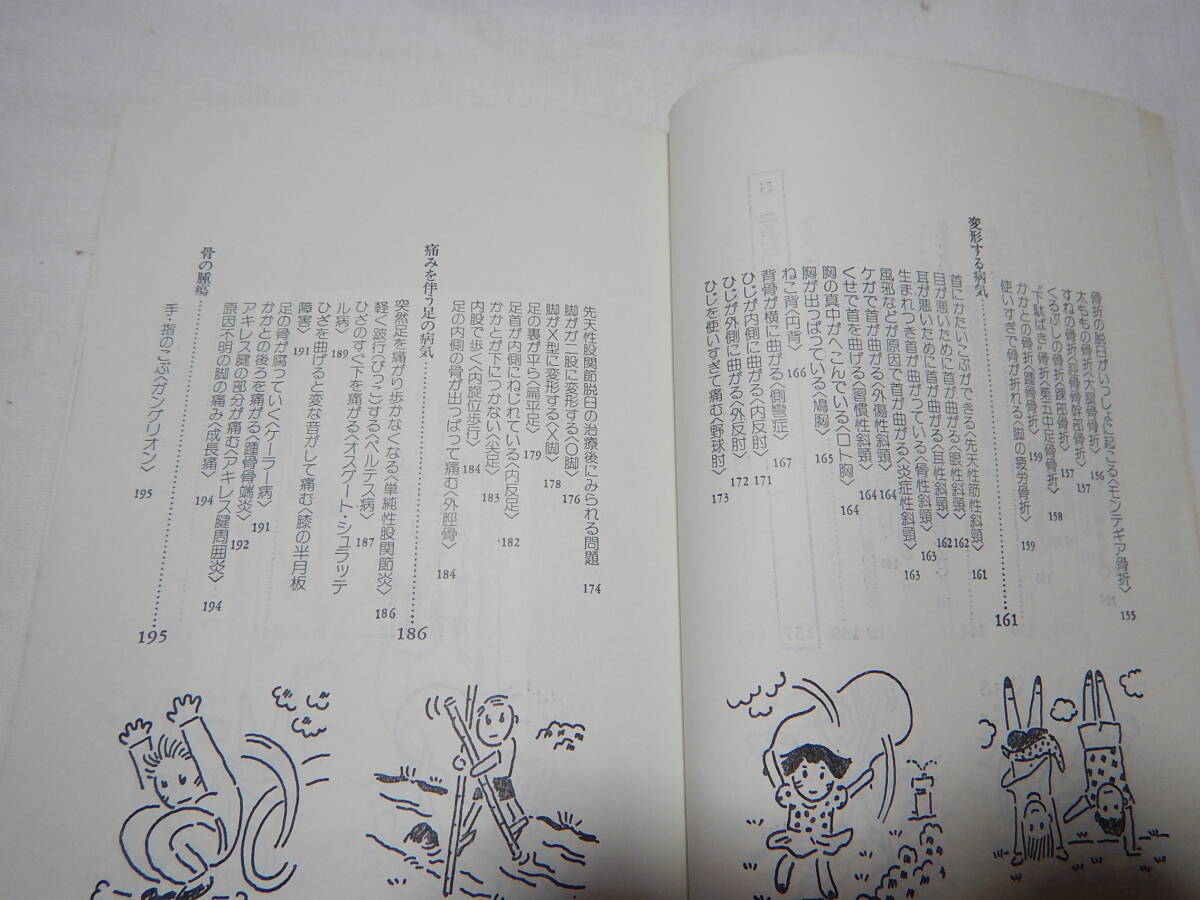 骨折の脱臼がいっしょに起こる〈モンテギア骨折〉 155
太ももの骨折〈大腿骨骨折〉 156
すねの骨折〈脛骨骨幹部骨折〉 157
くるぶしの骨折〈踝部骨折〉 157
“下駄ばき”骨折〈第五中足骨骨折〉 158
かかとの骨折〈踵骨骨折〉 159
使いすぎで骨が折れる〈脚の疲労骨折〉 159
変形する病気 161
首にかたいこぶができる〈先天性筋性斜頸〉 161
目が悪いために首が曲がる〈眼性斜頸〉 162
耳が悪いために首が曲がる〈耳性斜頸〉 162
生まれつき首が曲がっている〈骨性斜頸〉 163
風邪などが原因で首が曲がる〈炎症性斜頸〉 163
ケガで首が曲がる〈外傷性斜頸〉 164
くせで首を曲げる〈習慣性斜頸〉 164
胸の真中がへこんでいる〈ロト胸〉 164
胸が出っぱっている〈鳩胸〉 165
ねこ背〈円背〉 166
背骨が横に曲がる〈側彎症〉 167
ひじが内側に曲がる〈内反肘〉 171
ひじが外側に曲がる〈外反肘〉 172
ひじを使いすぎて痛む〈野球肘〉 173
先天性股関節脱臼の治療後にみられる問題 174
脚がガニ股に変形する〈O脚〉 176
脚がX型に変形する〈X脚〉 178
足の裏が平ら〈扁平足〉 179
足首が内側にねじれている〈内反足〉 182
かかとが下につかない〈尖足〉 183
内股で歩く〈内旋位歩行〉 184
足の内側の骨が出っぱって痛む〈外脛骨〉 184
痛みを伴う足の病気 186
突然足を痛がり歩かなくなる〈単純性股関節炎〉 186
軽く跛行〈びっこ〉する〈ペルテス病〉 187
ひざのすぐ下を痛がる〈オスグート・シュラッテ
ル病〉 189
ひざを曲げると変な音がして痛む〈膝の半月板
障害〉 191
足の骨が腐っていく〈ケーラー病〉 191
かかとの後ろを痛がる〈踵骨骨端炎〉 192
アキレス腱の部分が痛む〈アキレス腱周囲炎〉 194
原因不明の脚の痛み〈成長痛〉 194
骨の腫瘍 195
手・指のこぶ〈ガングリオン〉 195